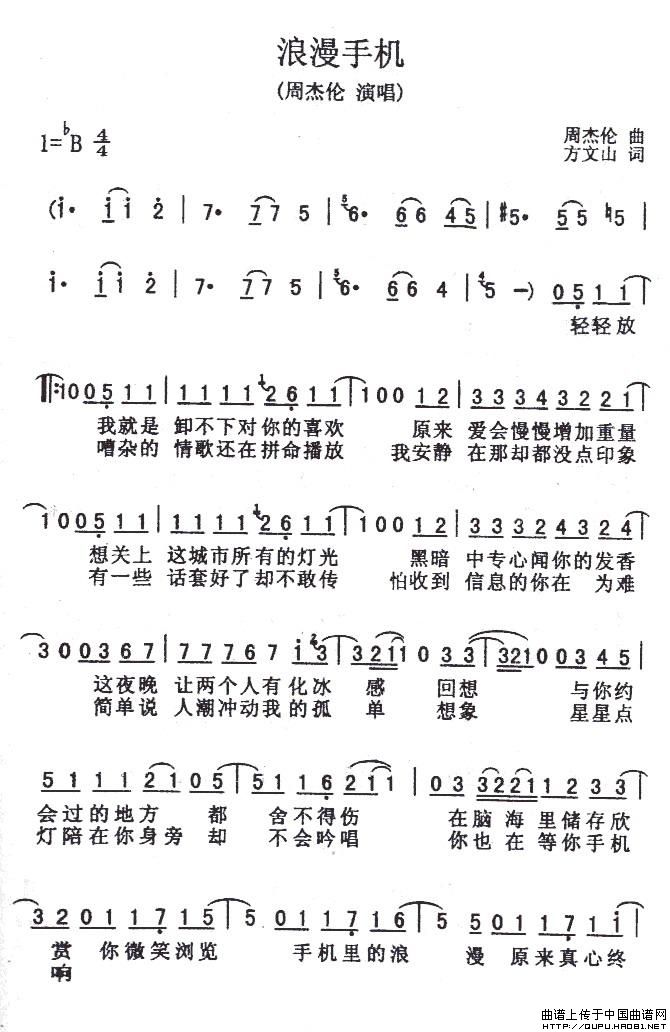 浪漫手机
(周杰伦 演唱)
1=♭B 4/4
周杰伦 曲
方文山 词
(i· i i 2 | 7· 7 7 5 | 6· 6 6 4 5 | #5· 5 5 ♮5 |
i· i i 2 | 7· 7 7 5 | 6· 6 6 4 | 5 —) 0 5 1 1 |
轻轻放
‖: 1 0 0 5 1 1 | 1 1 1 1 2 6 1 1 | 1 0 0 1 2 | 3 3 3 4 3 2 2 1 |
我就是 卸不下对你的喜欢 原来 爱会慢慢增加重量
嘈杂的 情歌还在拼命播放 我安静 在那却都没点印象
1 0 0 5 1 1 | 1 1 1 1 2 6 1 1 | 1 0 0 1 2 | 3 3 3 2 4 3 2 4 |
想关上 这城市所有的灯光 黑暗 中专心闻你的发香
有一些 话套好了却不敢传 怕收到 信息的你在 为难
3 0 0 3 6 7 | 7 7 7 6 7 i 3 | 3 2 1 1 0 3 3 | 3 2 1 0 0 3 4 5 |
这夜晚 让两个人有化冰 感 回想 与你约
简单说 人潮冲动我的孤 单 想象 星星点
5 1 1 1 2 1 0 5 | 5 1 1 6 2 1 1 | 0 3 3 2 2 1 1 2 3 3 |
会过的地方 都 舍不得伤 在脑 海里储存欣
灯陪在你身旁 却 不会吟唱 你也在 等你手机
3 2 0 1 1 7 1 5 | 5 0 1 1 7 1 6 | 5 5 0 1 1 7 1 i |
赏 你微笑浏览 手机里的浪 漫 原来真心终
响
曲谱上传于中国曲谱网
http://QUPU.HAO81.NET